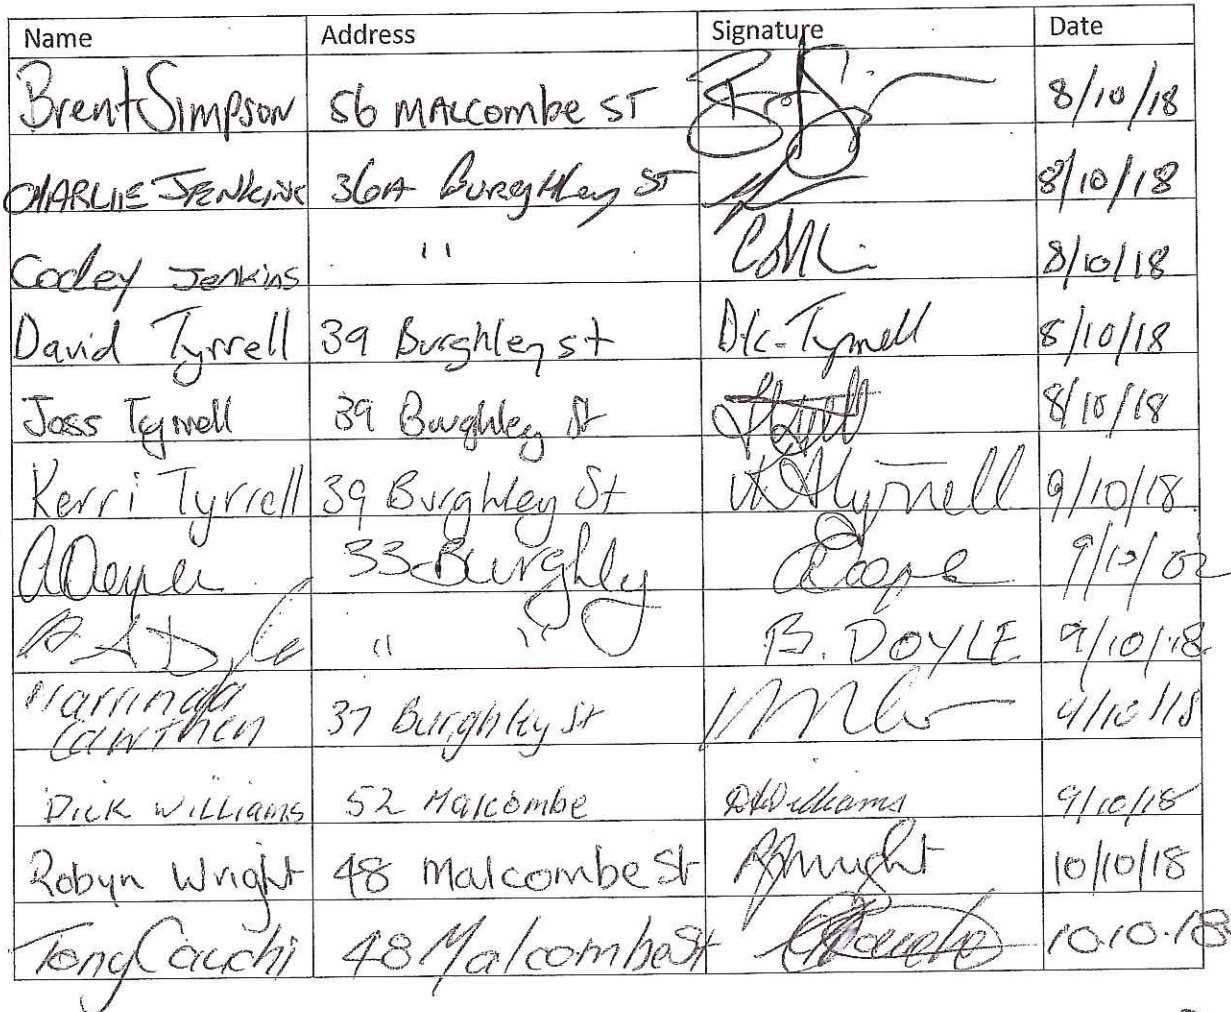 Name Address Signature Date
Brent Simpson 56 MALCombe ST 8/10/18
CHARLIE JENKINS 36A BuRgHley ST 8/10/18
Codey Jenkins " 8/10/18
David Tyrrell 39 Burghley st Tyrrell 8/10/18
Joss Tyrrell 39 Burghley St 8/10/18
Kerri Tyrrell 39 Burghley St Tyrrell 9/10/18
33 Burghly
" " B. DOYLE 9/10/18
Marrinda
Cawthen 37 Burghley St 9/10/18
Dick Williams 52 Malcombe Williams 9/10/18
Robyn Wright 48 Malcombe St Wright 10/10/18
Tony Cauchi 48 Malcombe St 10.10.18